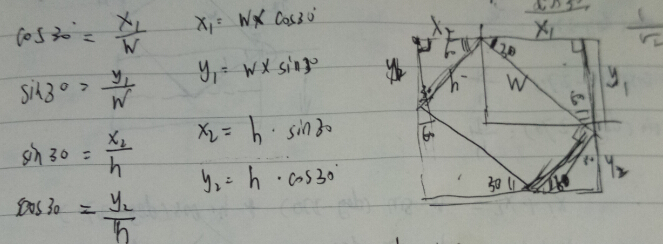 cos30° = x₁/W   x₁ = W × cos30°
sin30 = y₁/W   y₁ = W × sin30
sin30 = x₂/h   x₂ = h · sin30
cos30 = y₂/h   y₂ = h · cos30°
x₁
30
y₁
h
W
y₂
30